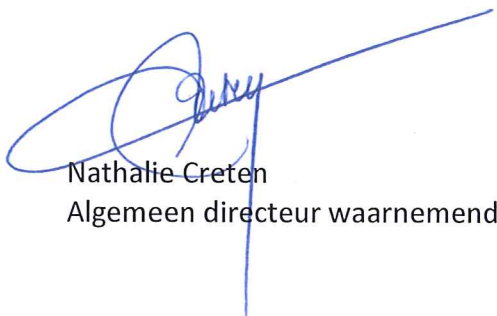 Nathalie Creten
Algemeen directeur waarnemend